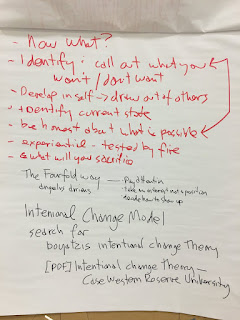 - Now what?
- Identify : call out what you
want / don't want
- Develop in self → draw out of others
- Identify current state
- be honest about what is possible
- experiential - tested by fire
- & what will you sacrifice
The Fourfold way — Pay attention
angeles arrien — take an interest not a position
— decide how to show up
Intentional Change Model
search for
boyatzis intentional change Theory
[PDF] Intentional change Theory -
Case Western Reserve University